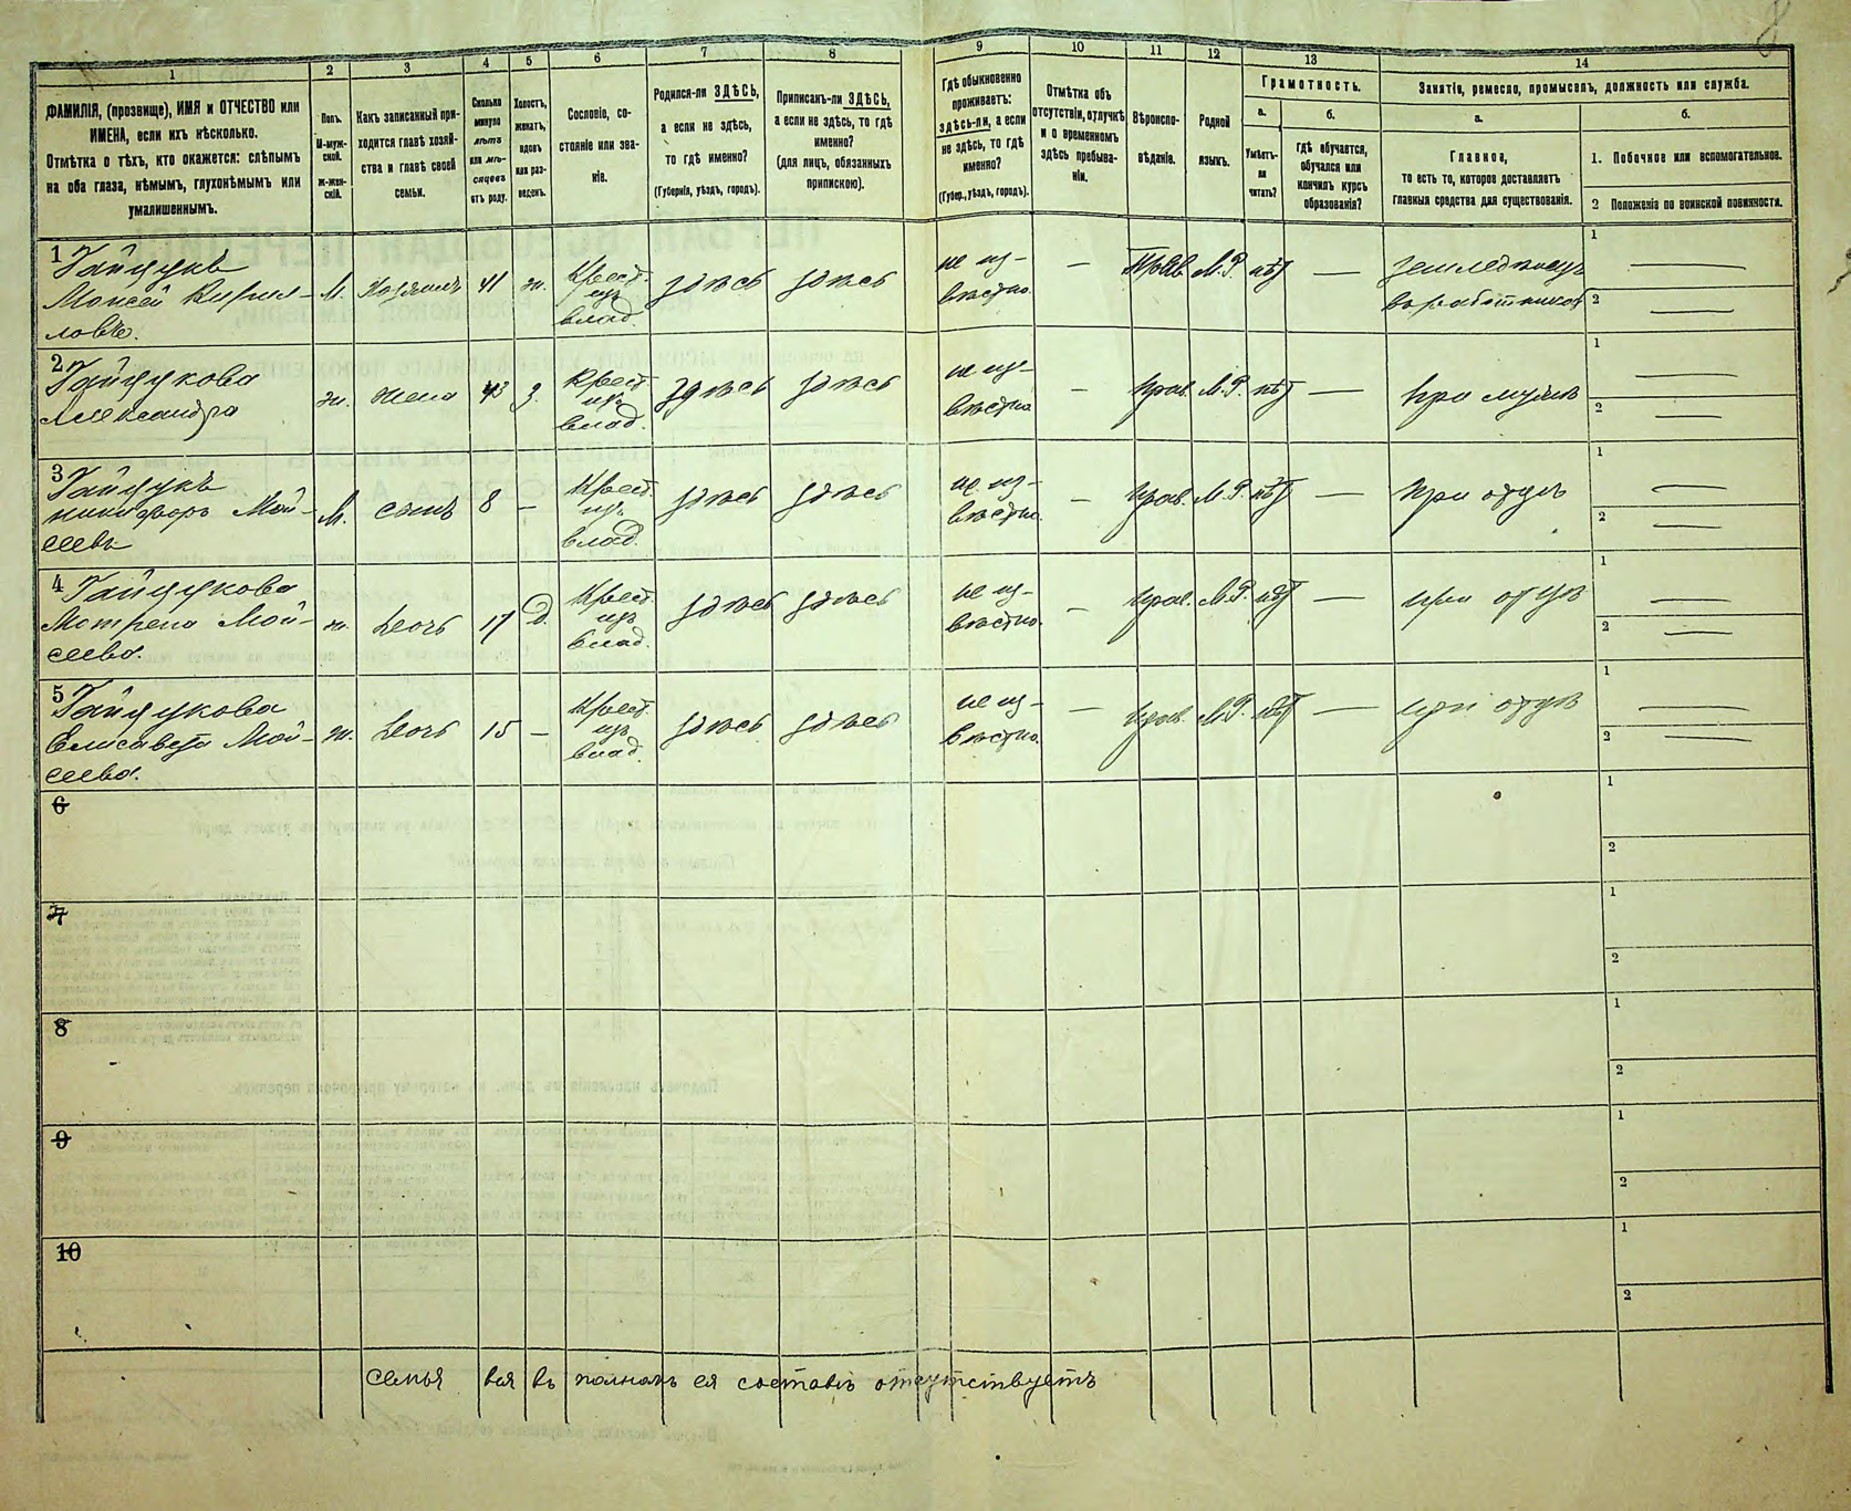 8
1 2 3 4 5 6 7 8 9 10 11 12 13 14
ФАМИЛІЯ, (прозвище), ИМЯ и ОТЧЕСТВО или
ИМЕНА, если ихъ нѣсколько.
Отмѣтка о тѣхъ, кто окажется: слѣпымъ
на оба глаза, нѣмымъ, глухонѣмымъ или
умалишеннымъ.
Полъ.
М-муж-
ской.
Ж-жен-
скій.
Какъ записанный при-
ходится главѣ хозяй-
ства и главѣ своей
семьи.
Сколько
минуло
лѣтъ
или мѣ-
сяцевъ
отъ роду.
Холостъ,
женатъ,
вдовъ
или раз-
веденъ.
Сословіе, со-
стояніе или зва-
ніе.
Родился-ли ЗДѢСЬ,
а если не здѣсь,
то гдѣ именно?
(Губернія, уѣздъ, городъ).
Приписанъ-ли ЗДѢСЬ,
а если не здѣсь, то гдѣ
именно?
(Для лицъ, обязанныхъ
припискою).
Гдѣ обыкновенно
проживаетъ:
здѣсь-ли, а если
не здѣсь, то гдѣ
именно?
(Губер., уѣздъ, городъ).
Отмѣтка объ
отсутствіи, отлучкѣ
и о временномъ
здѣсь пребыва-
ніи.
Вѣроиспо-
вѣданіе.
Родной
языкъ.
Грамотность.
а.
Умѣетъ-
ли
читать?
б.
гдѣ обучается,
обучался или
кончилъ курсъ
образованія?
Занятіе, ремесло, промыселъ, должность или служба.
а.
Главное,
то есть то, которое доставляетъ
главныя средства для существованія.
б.
1. Побочное или вспомогательное.
2 Положеніе по воинской повинности.
1 Гайдукъ
Моисей Кирил-
ловъ.
М. Хозяинъ 41 ж.
Крест.
изъ
влад.
здѣсь здѣсь
не из-
вѣстно.
— Прав. М.Р. нѣт —
земледѣлецъ
въ работникахъ
1 —
2 —
2 Гайдукова
Александра
ж. жена 43 з.
Крест.
изъ
влад.
здѣсь здѣсь
не из-
вѣстно
— прав. М.Р. нѣт — при мужѣ
1 —
2 —
3 Гайдукъ
Никифоръ Мой-
сеевъ
М. сынъ 8 —
Крест.
изъ
влад.
здѣсь здѣсь
не из-
вѣстно.
— прав. М.Р. нѣт — при отцѣ
1 —
2 —
4 Гайдукова
Мотрена Мой-
сеева.
ж. дочь 17 д.
Крест.
изъ
влад.
здѣсь здѣсь
не из-
вѣстно.
— прав. М.Р. нѣт — при отцѣ
1 —
2 —
5 Гайдукова
Елисавета Мой-
сеева.
ж. дочь 15 —
Крест.
изъ
влад.
здѣсь здѣсь
не из-
вѣстно.
— прав. М.Р. нѣт — при отцѣ
1 —
2 —
6
1
2
7
1
2
8
1
2
9
1
2
10
1
2
семья вся въ полномъ ея составѣ отсутствуетъ